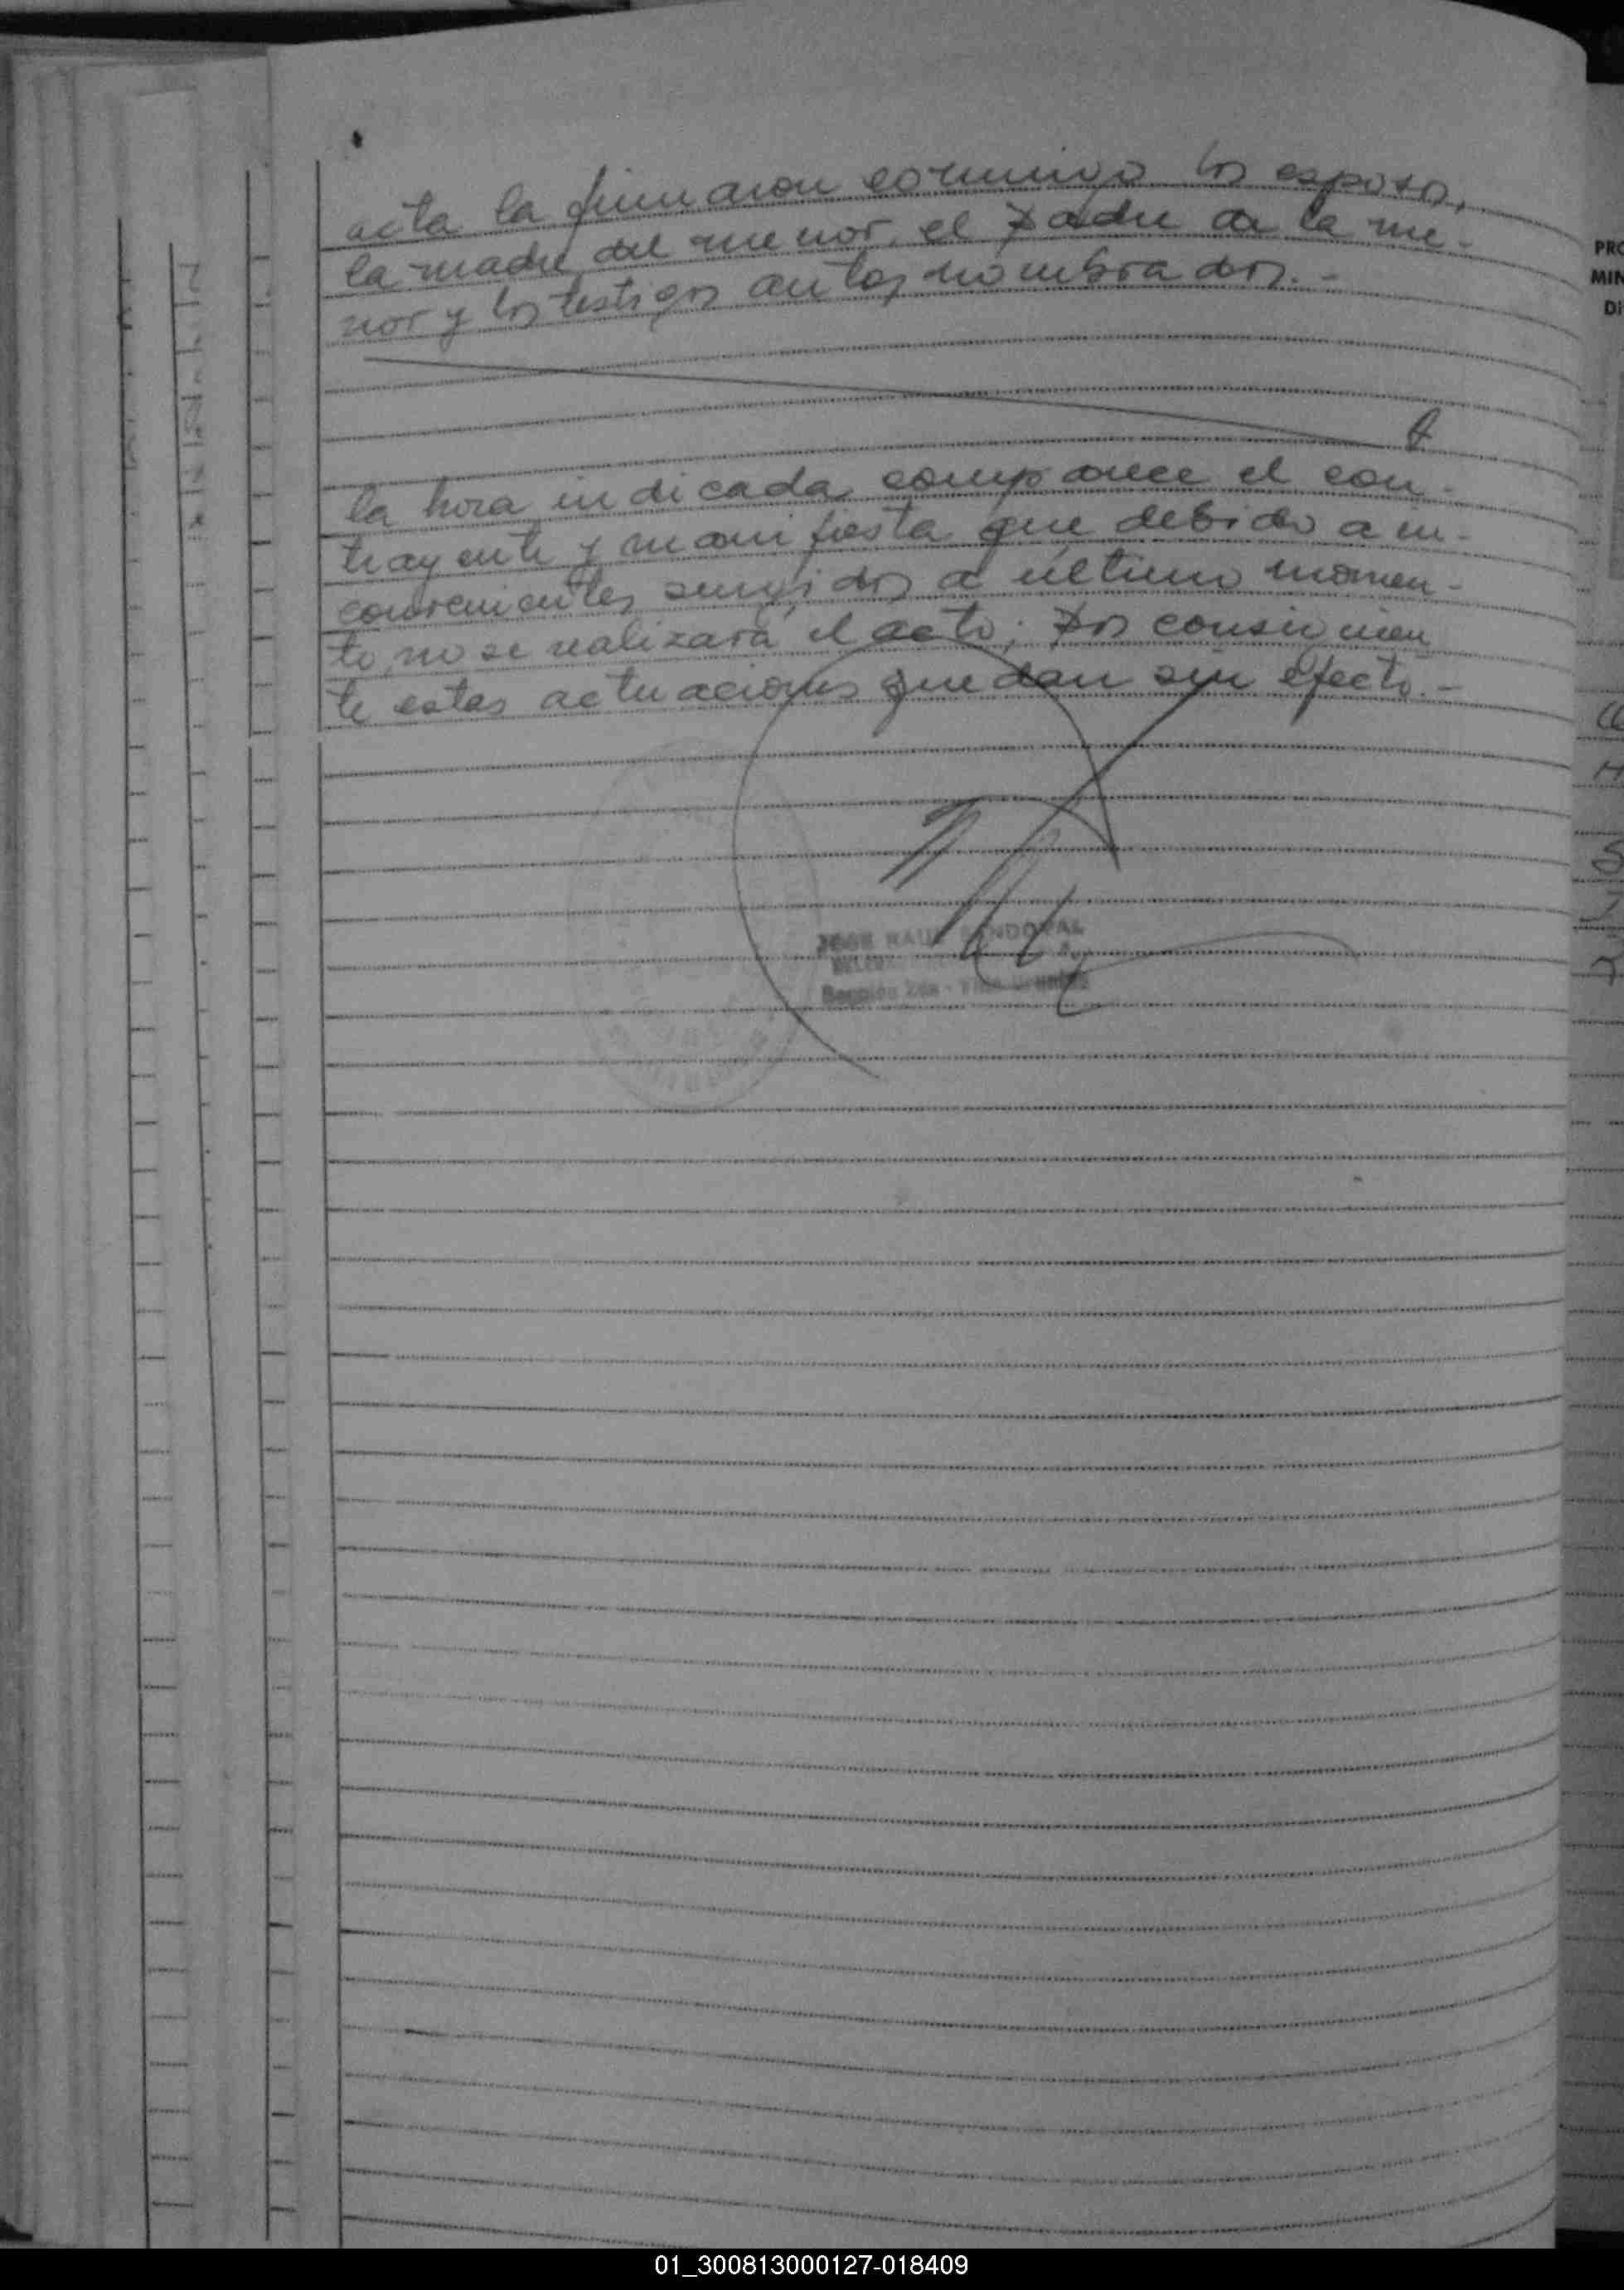 acta la firmaron conmigo los esposos,
la madre del menor, el padre de la me-
nor y los testigos antes nombrados.-
A
la hora indicada comparece el con-
trayente y manifiesta que debido a in-
convenientes surgidos a último momen-
to, no se realizará el acto; Por consiguien
te estas actuaciones quedan sin efecto.-
JOSE RAUL SANDOVAL
PRO
MIN
Di
01_300813000127-018409